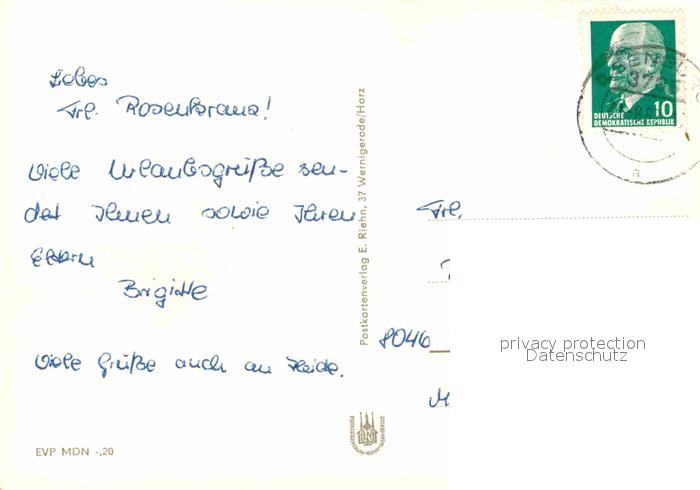 Liebes
Frl. Rosenkranz!
Viele Urlaubsgrüße sen-
det Ihnen sowie Ihren
Eltern
Brigitte
Viele Grüße auch an Heide.
EVP MDN -,20
Postkartenverlag E. Riehn, 37 Wernigerode/Harz
10
DEUTSCHE
DEMOKRATISCHE REPUBLIK
Frl.
8046
privacy protection
Datenschutz